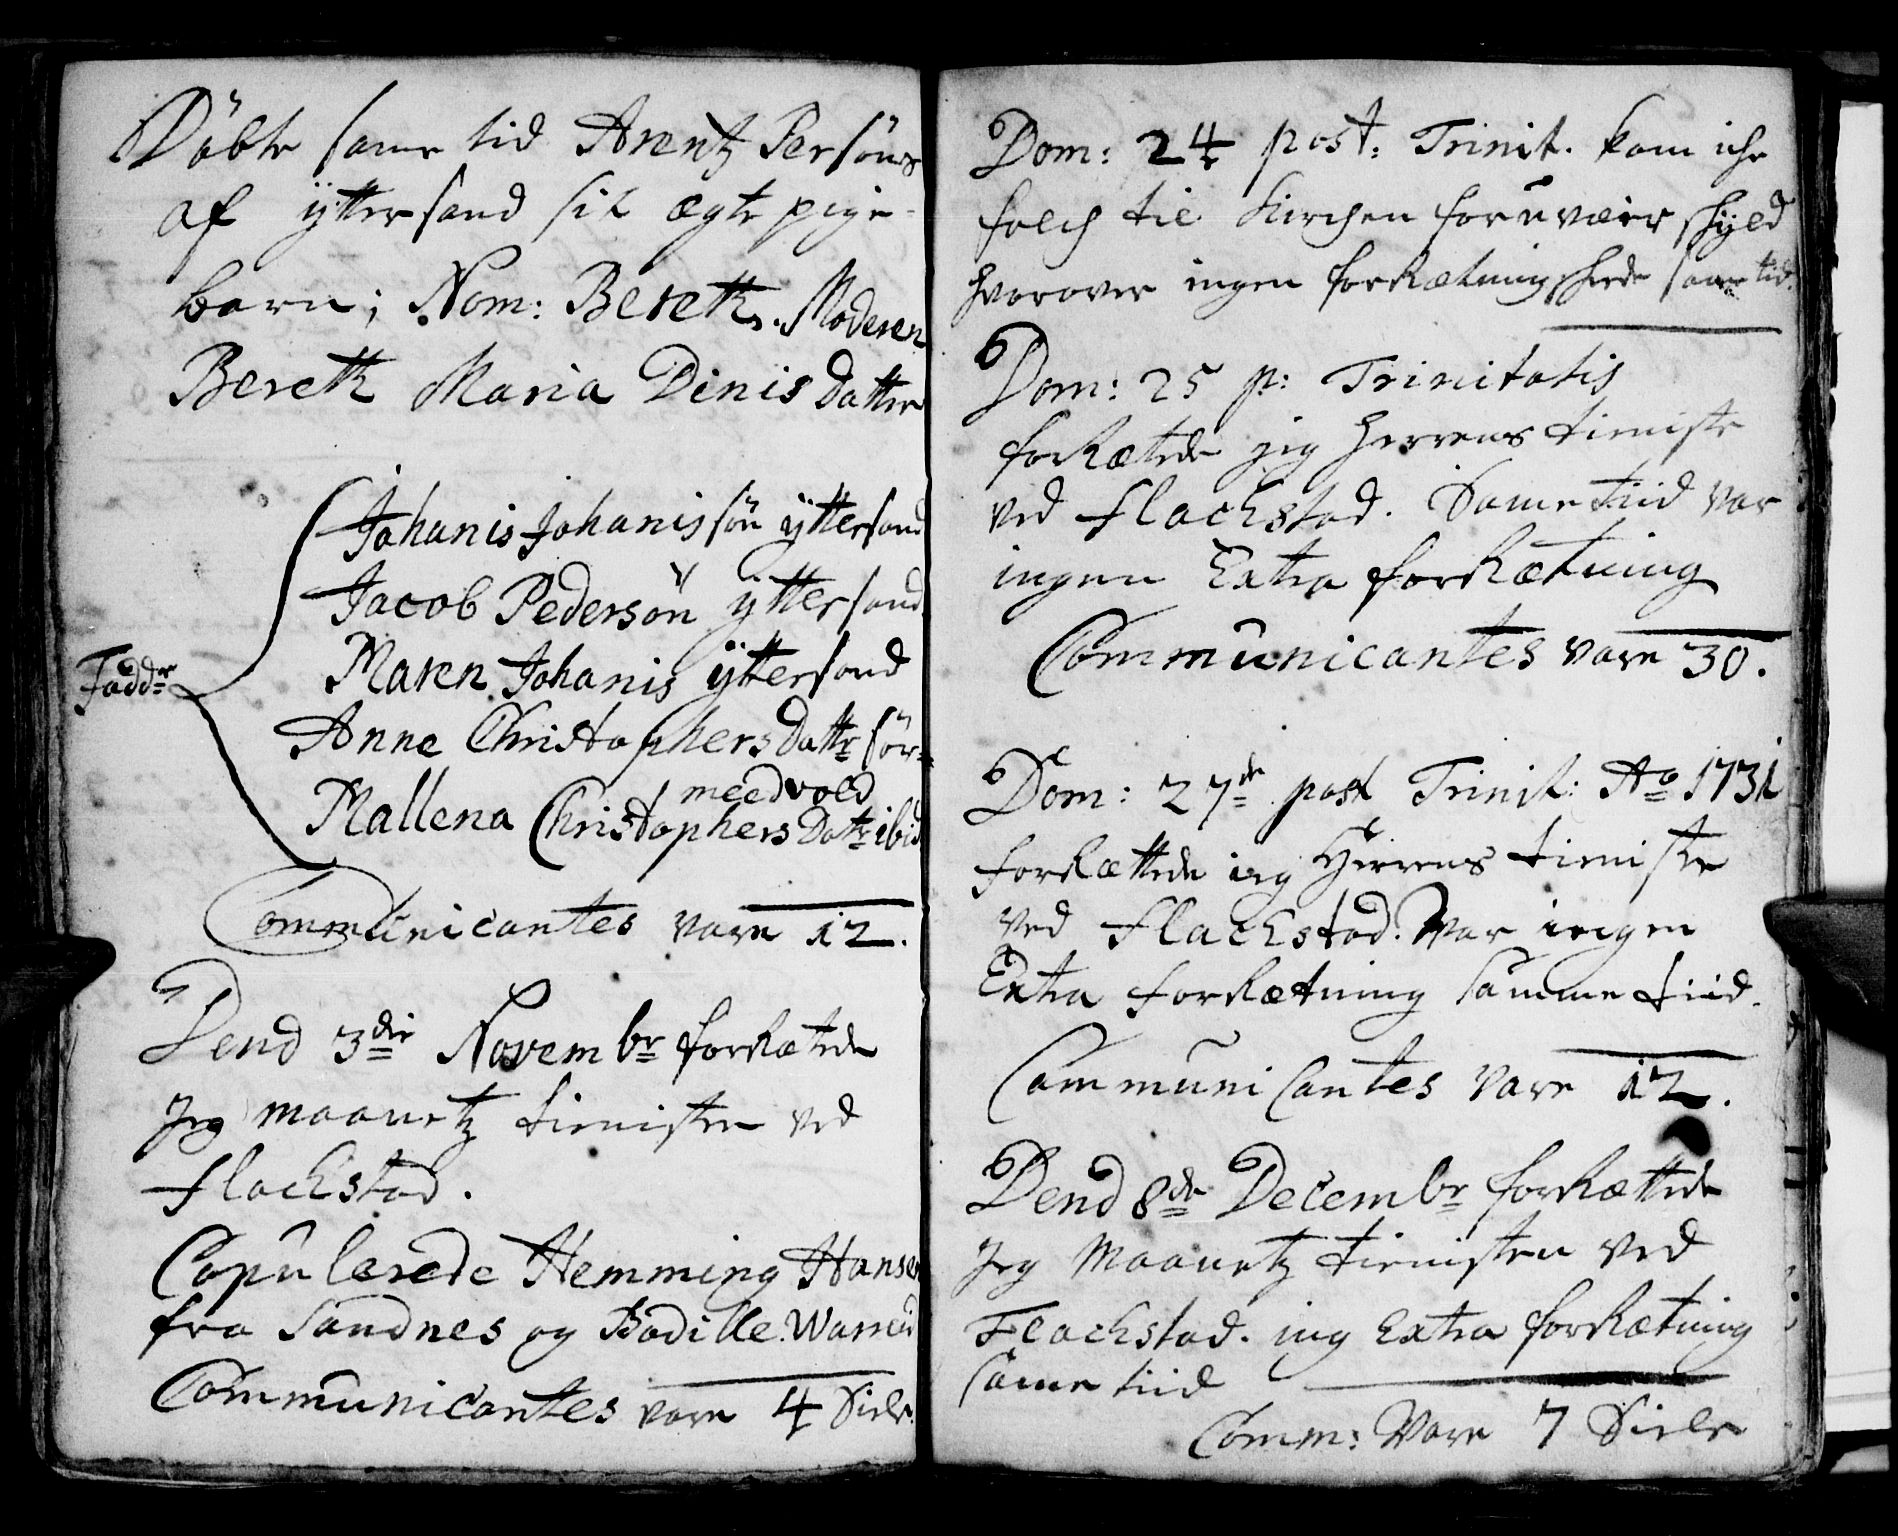 Döbte same tid Arentz Persöns
af ÿttersand sit ægte pige-
barn; Nom: Bereth. Moderen
Bereth Maria Dinis datter
Johanis Johanissön ÿttersand
Jacob Pedersön ÿttersand
Maren Johanis ÿttersand
Fadd:r
Anne Christophers Datt:r sör=
meedvold
Mallena Christophers Dat:r ibid
Communicantes vare 12.
Dend 3die Novembr forrætede
Jeg maanetz tienisten ved
Flackstad.
Copulerede Hemming Hansen
fra Sandnes og Bodille
Communicantes vare 4 Siele.
Dom: 24 post: Trinit. kom iche
folch til Kirchen for uvæirs skÿld
hvorover ingen forrætning skede same tid.
Dom: 25 p: Trinitatis
forrætede jeg Herrens tieniste
ved Flackstad. Same tiid var
ingen Extra forrætning
Communicantes vare 30.
Dom: 27de post Trinit: Ao 1731
forrættede ieg Herrens tieniste
ved Flackstad. War ingen
Extra forrætning samme tiid.
Communicantes vare 12.
Dend 8de Decembr forrættede
Jeg Maanetz tienisten ved
Flackstad. ing Extra forrætning
same tiid
Comm: Vare 7 Siele